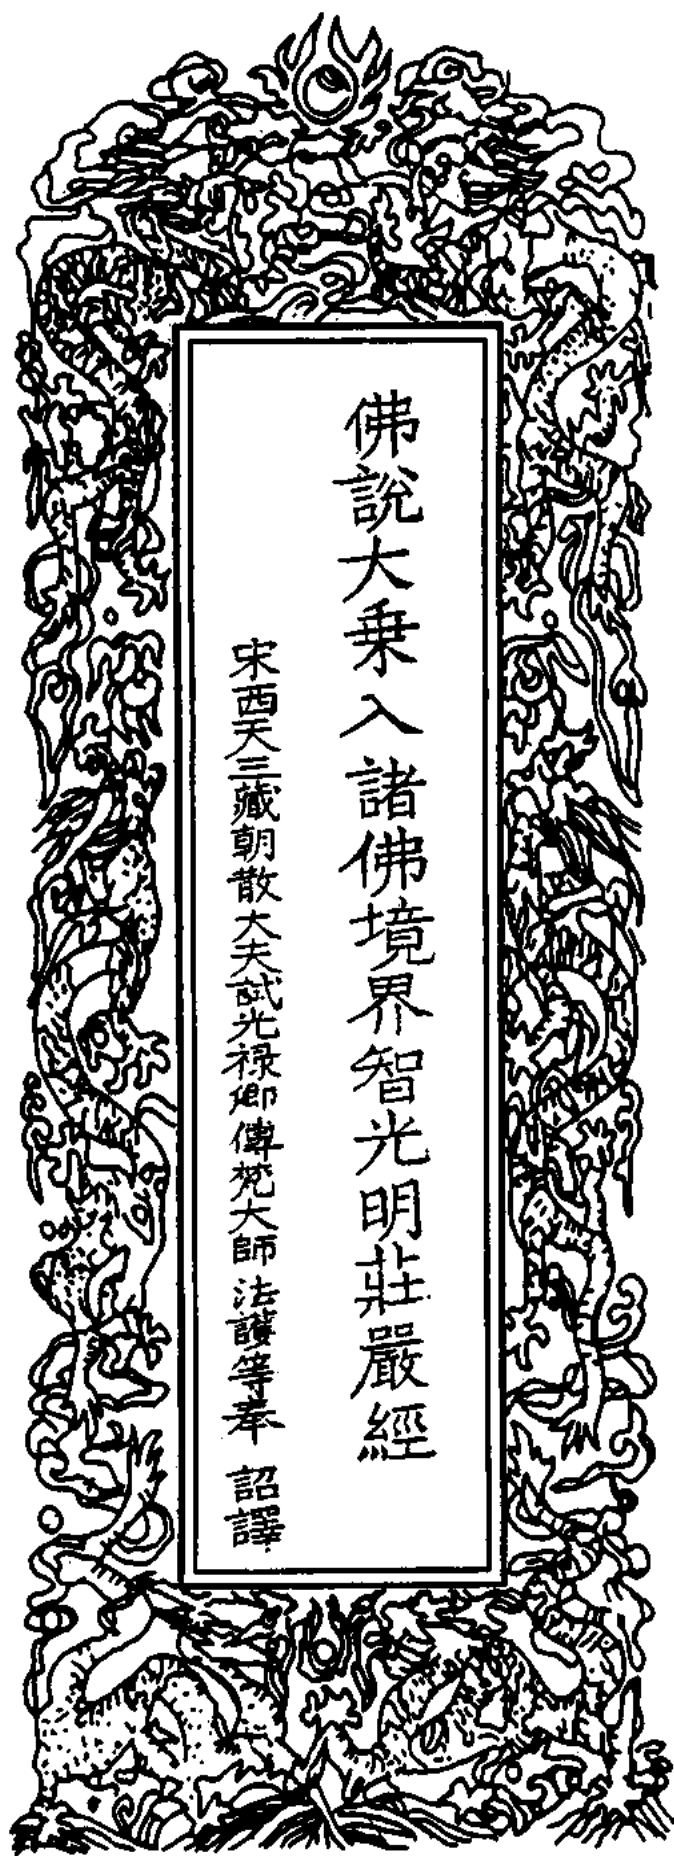 佛說大乗入諸佛境界智光明莊嚴經
宋西天三藏朝散大夫試光祿卿傳梵大師法護等奉 詔譯